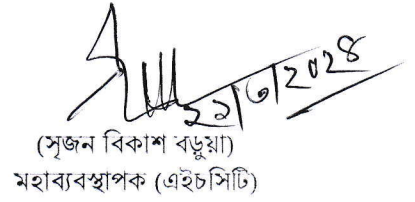 ২১/৩/২০২৪
(সৃজন বিকাশ বড়ুয়া)
মহাব্যবস্থাপক (এইচসিটি)